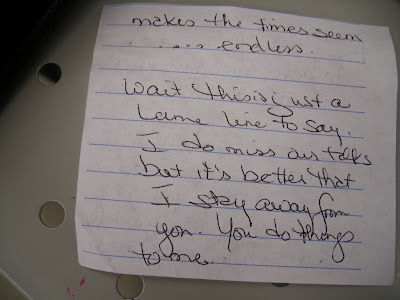 makes the times seem
..... endless.
Wait this is just a
lame line to say.
I do miss our talks
but it's better that
I stay away from
you. You do things
to me.